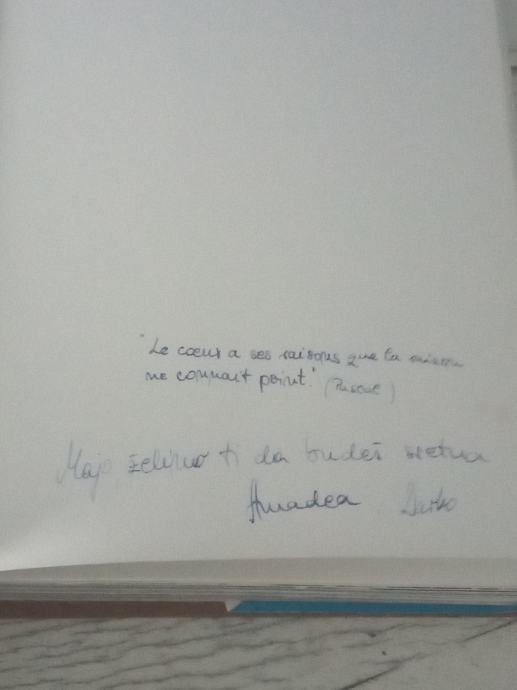 "Le cœur a ses raisons que la raison
ne connait point." (Pascal)
Majo, želimo ti da budeš sretna
Amadea Darko